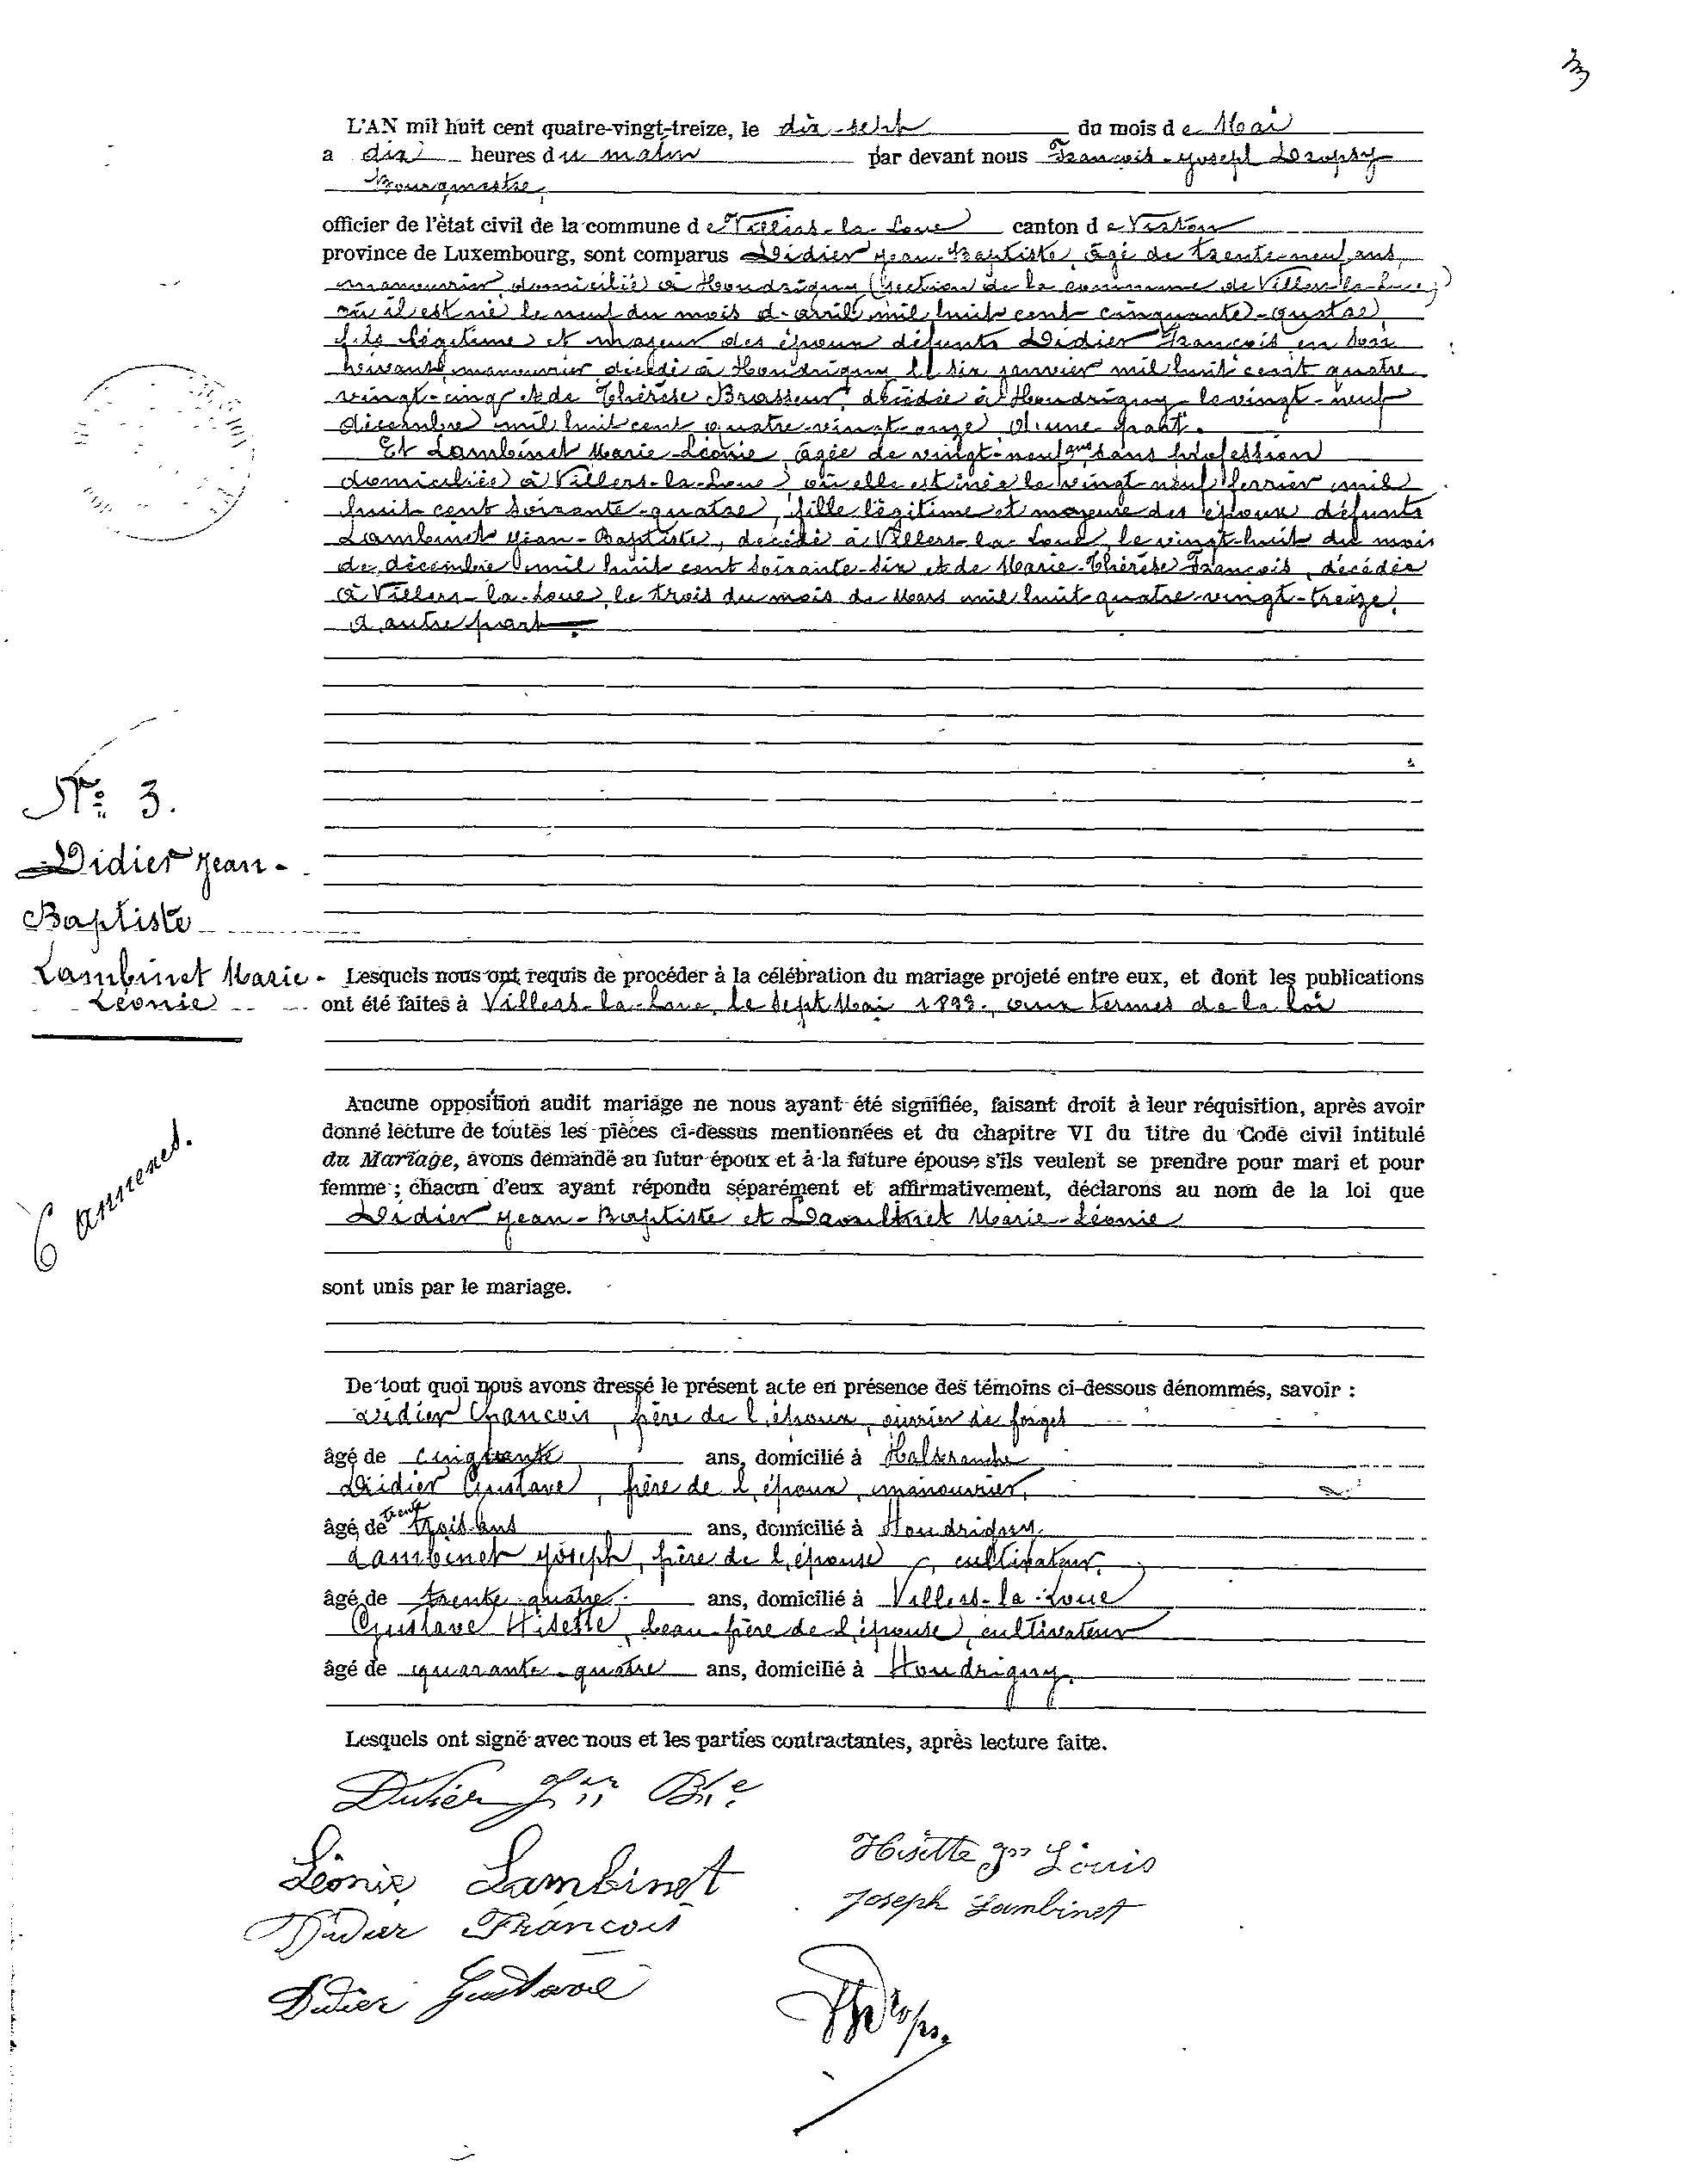 3
L'AN mil huit cent quatre-vingt-treize, le dix-sept du mois de Mai
a dix heures du matin par devant nous François-Joseph Dropsy
Bourgmestre,
officier de l'état civil de la commune de Villers-la-Loue canton de Virton
province de Luxembourg, sont comparus Didier Jean-Baptiste, âgé de trente-neuf ans,
manouvrier, domicilié à Houdrigny (section de la commune de Villers-la-Loue,)
où il est né le neuf du mois d'avril mil huit cent cinquante-quatre,
fils légitime et majeur des époux défunts Didier François en son
vivant, manouvrier décédé à Houdrigny le six janvier mil huit cent quatre
vingt-cinq et de Thérèse Brasseur, décédée à Houdrigny le vingt-neuf
décembre mil huit cent quatre-vingt-onze, d'une part.
Et Lambinet Marie-Léonie, âgée de vingt-neuf ans sans profession
domiciliée à Villers-la-Loue, où elle est née le vingt-neuf février mil
huit cent soixante-quatre, fille légitime et majeure des époux défunts
Lambinet Jean-Baptiste, décédé à Villers-la-Loue, le vingt-huit du mois
de décembre mil huit cent soixante-six et de Marie-Thérèse François, décédée
à Villers-la-Loue, le trois du mois de Mars mil huit quatre-vingt-treize,
d'autre part
N° 3.
Didier Jean-
Baptiste
Lambinet Marie-
Léonie
Lesquels nous ont requis de procéder à la célébration du mariage projeté entre eux, et dont les publications
ont été faites à Villers-la-Loue, le sept Mai 1893., aux termes de la loi
6 annexes.
Aucune opposition audit mariage ne nous ayant été signifiée, faisant droit à leur réquisition, après avoir
donné lecture de toutes les pièces ci-dessus mentionnées et du chapitre VI du titre du Code civil intitulé
du Mariage, avons demandé au futur époux et à la future épouse s'ils veulent se prendre pour mari et pour
femme ; chacun d'eux ayant répondu séparément et affirmativement, déclarons au nom de la loi que
Didier Jean-Baptiste et Lambinet Marie-Léonie
sont unis par le mariage.
De tout quoi nous avons dressé le présent acte en présence des témoins ci-dessous dénommés, savoir :
Didier François, frère de l'époux, ouvrier de forges
âgé de cinquante ans, domicilié à Halanzy
Didier Gustave, frère de l'époux, manouvrier,
âgé de trente trois ans ans, domicilié à Houdrigny.
Lambinet Joseph, frère de l'épouse, cultivateur,
âgé de trente-quatre ans, domicilié à Villers-la-Loue
Gustave Hisette, beau-frère de l'épouse, cultivateur
âgé de quarante-quatre ans, domicilié à Houdrigny.
Lesquels ont signé avec nous et les parties contractantes, après lecture faite.
Didier Jean Bte
Léonie Lambinet
Hisette Jn Louis
Didier François
Joseph Lambinet
Didier Gustave